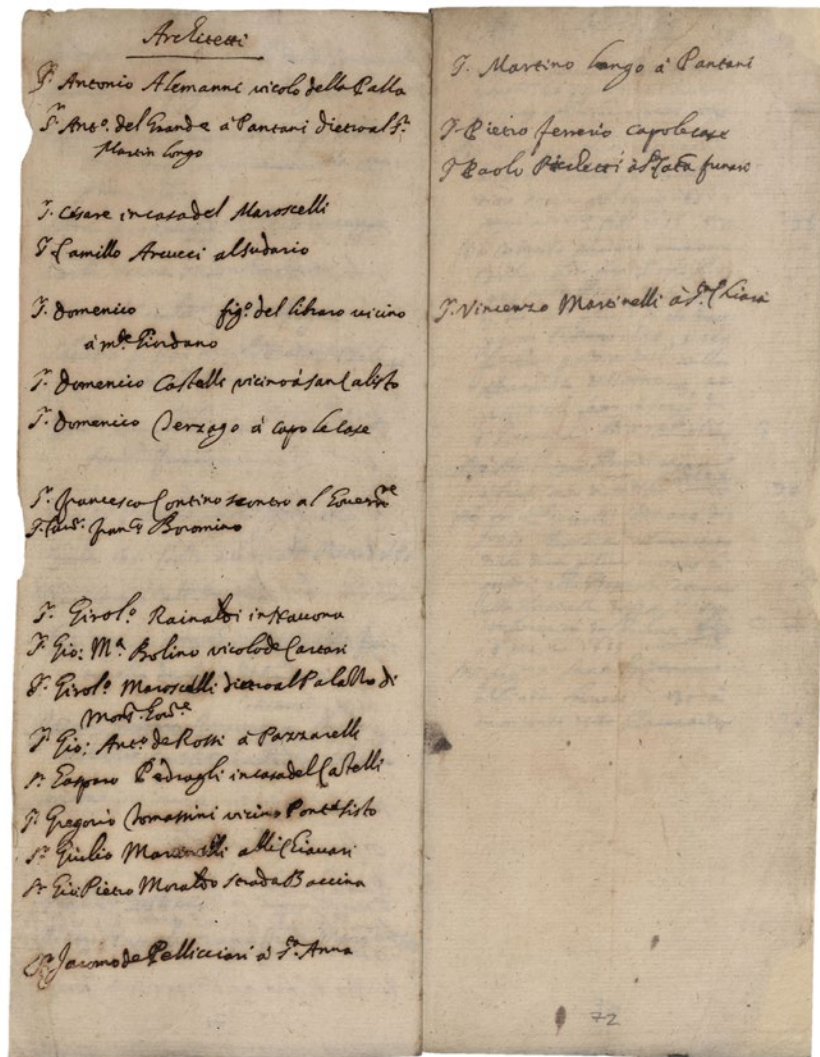 Architetti
Sr. Antonio Alemanni vicolo della Palla
Sr. Anto. del Grande à Pantani dietro al Sr.
Martin longo
Sr. Cesare in casa del Maroscelli
Sr. Camillo Arcucci al sudario
Sr. Domenico figo. del libraro vicino
à mte. Giordano
Sr. Domenico Castelli vicino à san Calisto
Sr. Domenico à capo le case
Sr. Francesco Contino scontro al Governre
Sr. Cavr. Franco Boromino
Sr. Girolo. Rainaldi in Navona
Sr. Gio: Ma. Bolino vicolo de Cartari
Sr. Girolo. Maroscelli dietro al Palazzo di
Monsr. Govre
Sr. Gio: Anto. de Rossi à Pazzarelli
Sr. Gasparo Pedrogli in casa del Castelli
Sr. Gregorio Tomassini vicino Ponte sisto
Sr. Giulio Martinelli alli Chiavari
Sr. Gio: Pietro Moraldo strada Baccina
Sr. Jacomo de Pellicciari à Sta. Anna
Sr. Martino longo à Pantani
Sr. Pietro ferrerio capo le case
Sr. Paolo Picchetti à Sta. Cata. funari
Sr. Vincenzo Martinelli à Sta. Chiara
72